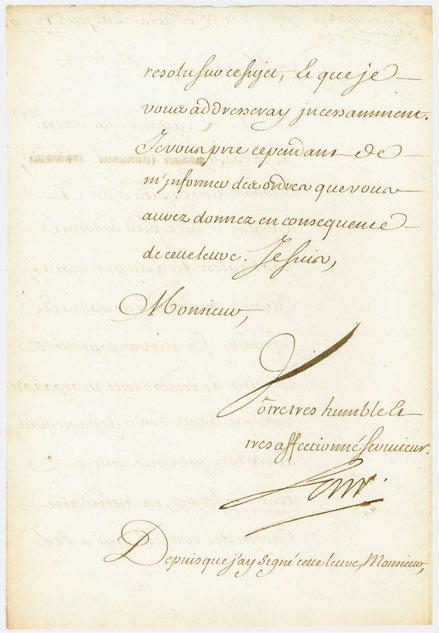 resolu sur ce sujet, et que je
vous addresseray incessamment.
Je vous prie cependant de
m'informer des ordres que vous
avez donnez en consequence
de cette lettre. Je suis,
Monsieur,
Vôtre tres humble et
tres affectionné serviteur.
Depuis que j'ay signé cette lettre, Monsieur,